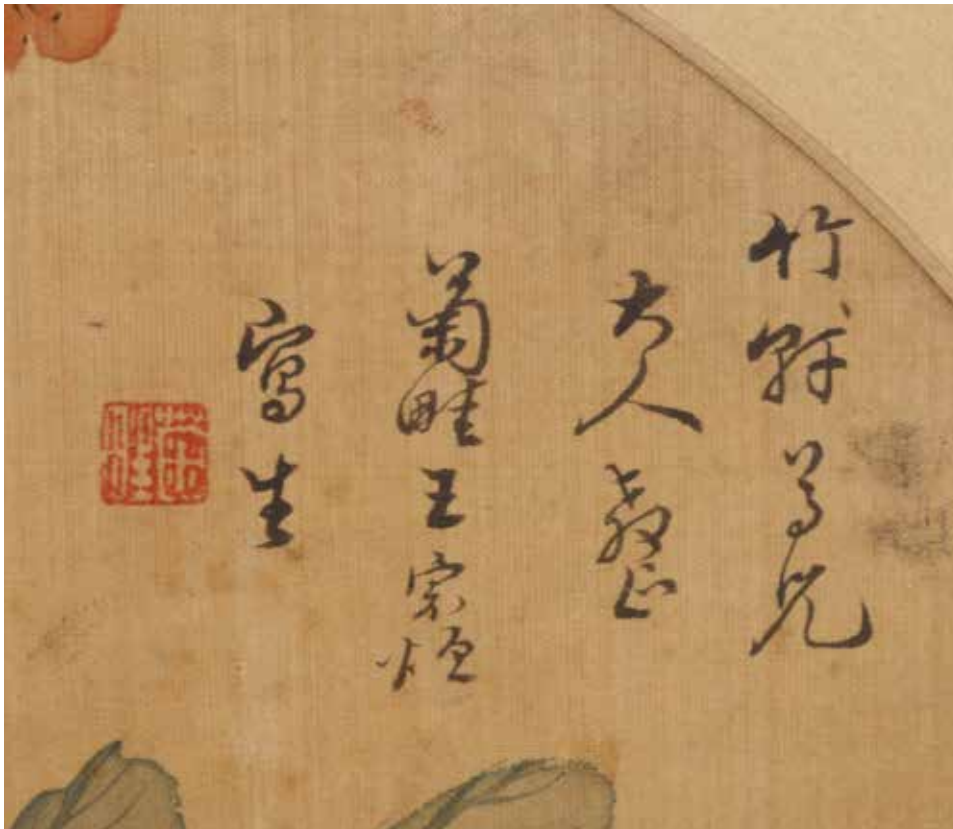 竹軒尊兄
大人教正
菊畦王宗烜
寫生
菊畦